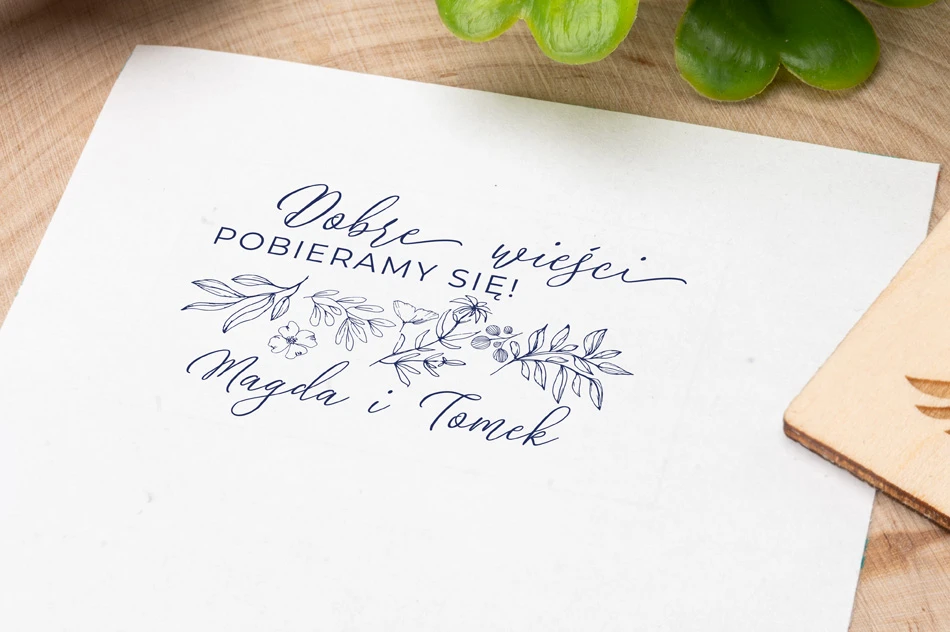 Dobre wieści
POBIERAMY SIĘ!
Magda i Tomek